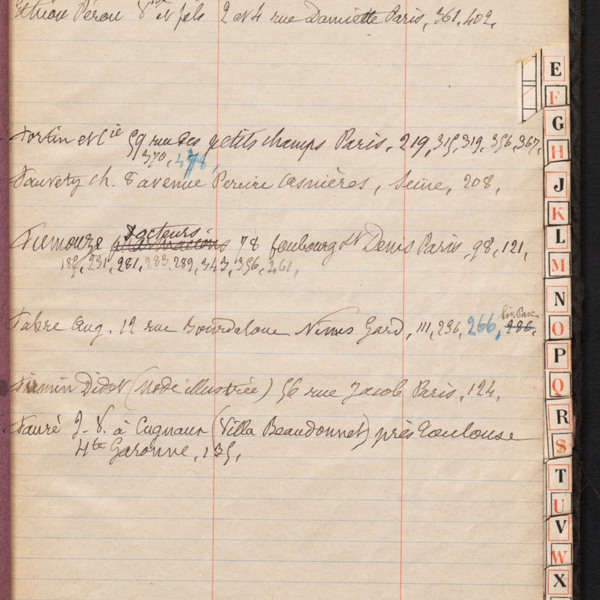 Pérou Vve et fils 2 et 4 rue Damiette Paris, 361, 402,
Fortin et Cie 59 rue des petits champs Paris, 219, 315, 319, 356, 367,
370, 478,
Fauvety ch. 8 avenue Pereire Asnières, Seine, 208,
docteurs
Fumouze pharmaciens 78 faubourg St Denis Paris, 98, 121,
185, 231, 281, 283, 289, 343, 356, 361,
Fabre Aug. 12 rue Bourdaloue Nimes Gard, 111, 236, 266, 286,
Firmin Didot (mode illustrée) 56 rue Jacob Paris, 124,
Fauré J. V. à Cugnaux (Villa Beaudonnet) près Toulouse
Hte Garonne, 135,
E
F
G
H
J
K
L
M
N
O
P
Q
R
S
T
U
V
W
X